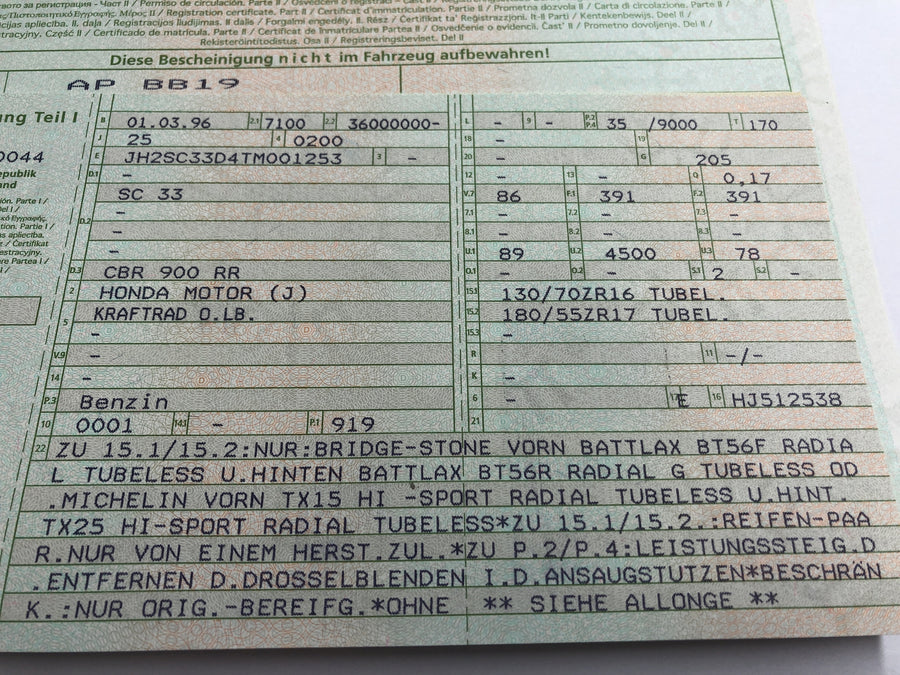 ство за регистрация - Част II / Permiso de circulación. Parte II /
Registracijos liudijimas. II dalis / Forgalmi engedély. II. Rész / Ċertifikat ta' Reġistrazzjoni. It-II Parti / Kentekenbewijs. Deel II /
Część II / Certificado de matrícula. Parte II / Certificat de înmatriculare Partea II / Osvedčenie o evidencii. Časť II / Prometno dovoljenje. Del II /
Rekisteröintitodistus. Osa II / Registreringsbeviset. Del II
Diese Bescheinigung nicht im Fahrzeug aufbewahren!
AP BB19
ng Teil I
B 01.03.96 2.1 7100 2.2 36000000- L - 9 - P.2 P.4 35 /9000 T 170
J 25 4 0200 18 - 19
0044 E JH2SC33D4TM001253 3 - 20 - G 205
epublik D.1 - 12 - 13 - Q 0,17
SC 33 V.7 86 F.1 391 F.2 391
D.2 - 7.1 - 7.2 - 7.3 -
- 8.1 - 8.2 - 8.3 -
- U.1 89 U.2 4500 U.3 78
D.3 CBR 900 RR O.1 - O.2 - S.1 2 S.2 -
2 HONDA MOTOR (J) 15.1 130/70ZR16 TUBEL.
5 KRAFTRAD O.LB. 15.2 180/55ZR17 TUBEL.
- 15.3 -
V.9 - R 11 -/-
14 - K -
P.3 Benzin 6 - 17 E 16 HJ512538
10 0001 14.1 - P.1 919 21
22 ZU 15.1/15.2:NUR:BRIDGE-STONE VORN BATTLAX BT56F RADIA
L TUBELESS U.HINTEN BATTLAX BT56R RADIAL G TUBELESS OD
.MICHELIN VORN TX15 HI -SPORT RADIAL TUBELESS U.HINT.
TX25 HI-SPORT RADIAL TUBELESS*ZU 15.1/15.2.:REIFEN-PAA
R.NUR VON EINEM HERST.ZUL.*ZU P.2/P.4:LEISTUNGSSTEIG.D
.ENTFERNEN D.DROSSELBLENDEN I.D.ANSAUGSTUTZEN*BESCHRÄN
K.:NUR ORIG.-BEREIFG.*OHNE ** SIEHE ALLONGE **